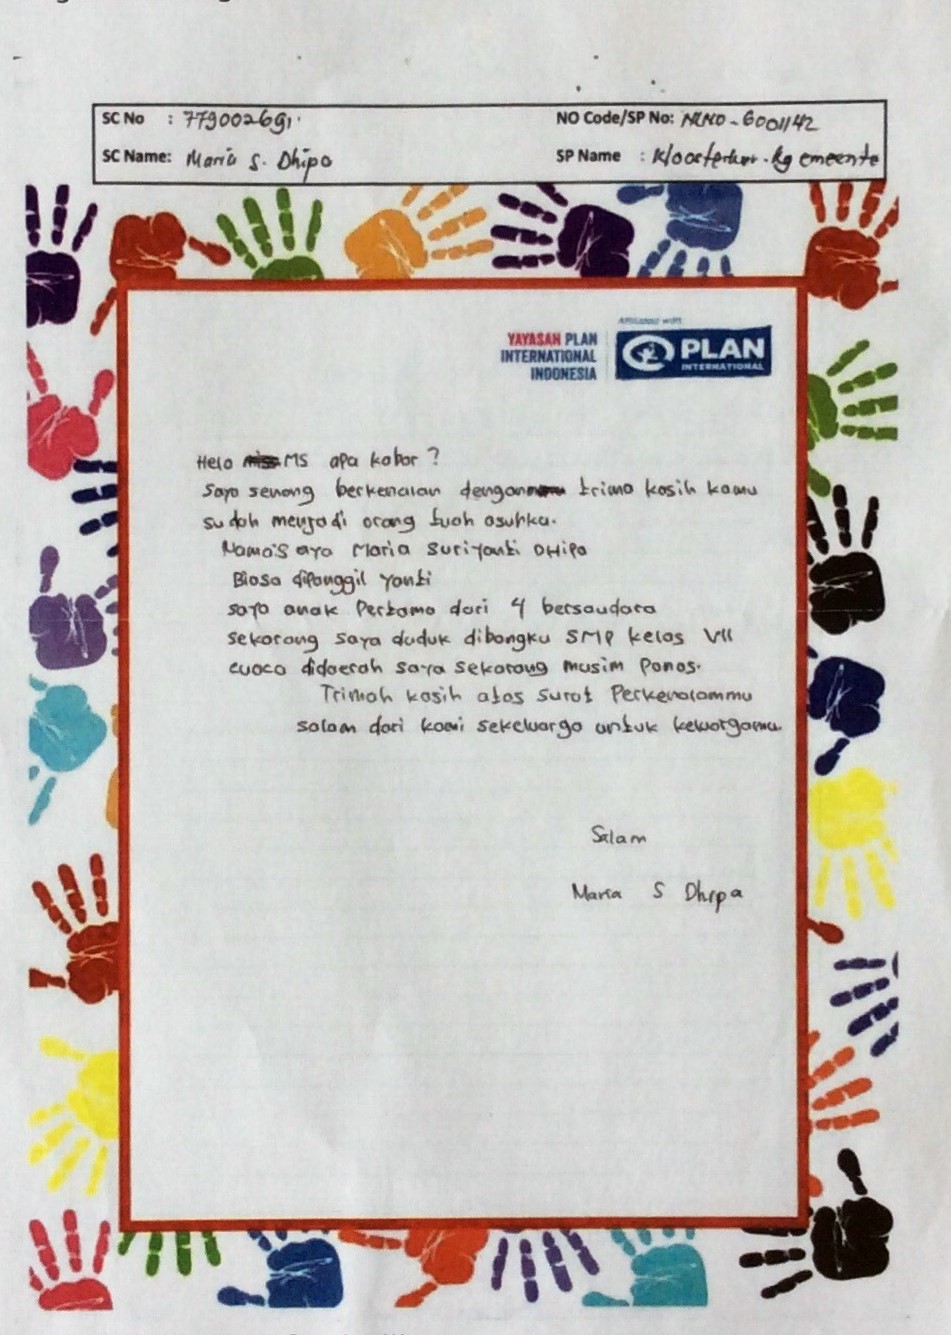 SC No : 779002691.
NO Code/SP No: NLNO-6001142
SC Name: Maria S. Dhipa
SP Name : Kloosterkerk-kg emeente
Affiliated with
YAYASAN PLAN
INTERNATIONAL
INDONESIA
PLAN
INTERNATIONAL
Helo MS apa kabar ?
Saya senang berkenalan dengan trima kasih kamu
sudah menjadi orang tuah asuhku.
Nama saya Maria Suriyanti DHIPa
Biasa dipanggil yanti
saya anak Pertama dari 4 bersaudara
sekarang saya duduk dibangku SMP kelas VII
cuaca didaerah saya sekarang musim Panas.
Trimah kasih atas surat Perkenalanmu
salam dari kami sekeluarga untuk keluargamu.
Salam
Maria S Dhipa